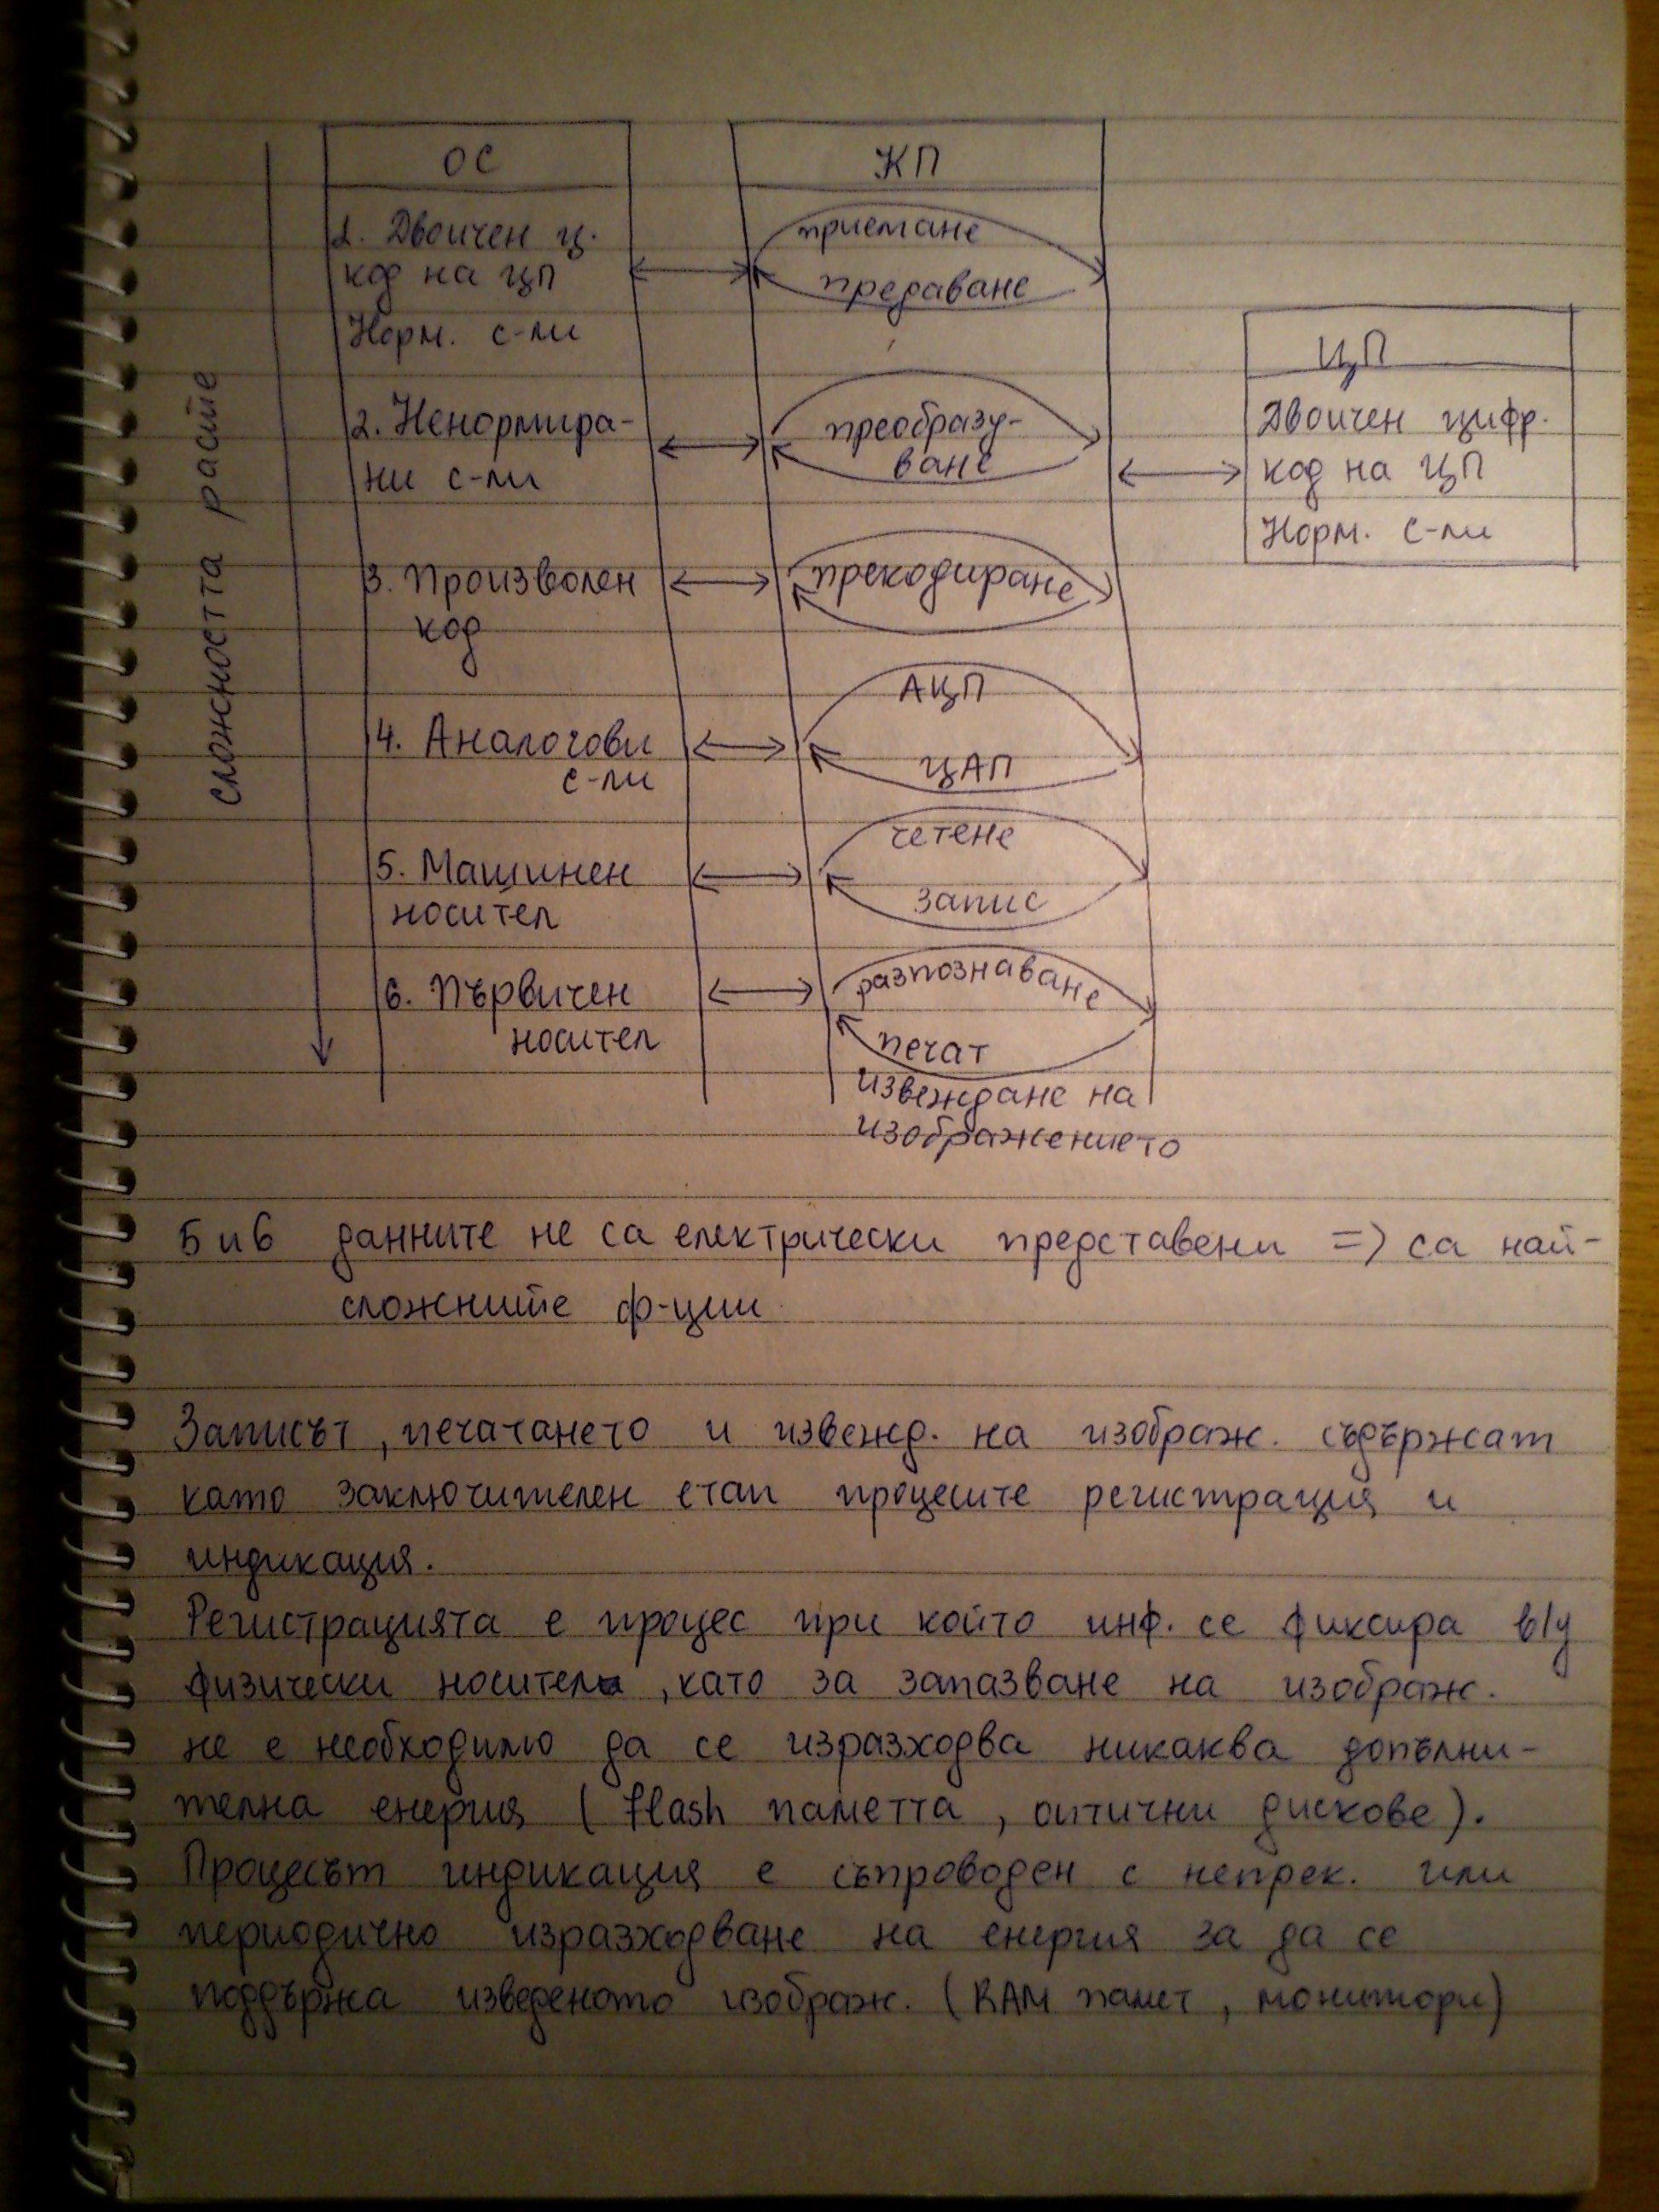 ОС
КП
1. Двоичен ц.
код на ЦП
Норм. с-ли
приемане
предаване
2. Ненормира-
ни с-ли
преобразу-
ване
ЦП
Двоичен цифр.
код на ЦП
Норм. с-ли
сложността расте
3. Произволен
код
прекодиране
4. Аналогови
с-ли
АЦП
ЦАП
5. Машинен
носител
четене
запис
6. Първичен
носител
разпознаване
печат
извеждане на
изображението
5 и 6 данните не са електрически представени => са най-
сложните ф-ции
Записът, печатането и извежд. на изображ. съдържат
като заключителен етап процесите регистрация и
индикация.
Регистрацията е процес при който инф. се фиксира в/у
физически носител, като за запазване на изображ.
не е необходимо да се изразходва никаква допълни-
телна енергия (flash паметта, оптични дискове).
Процесът индикация е съпроводен с непрек. или
периодично изразходване на енергия за да се
поддържа изведеното изображ. (RAM памет, монитори)